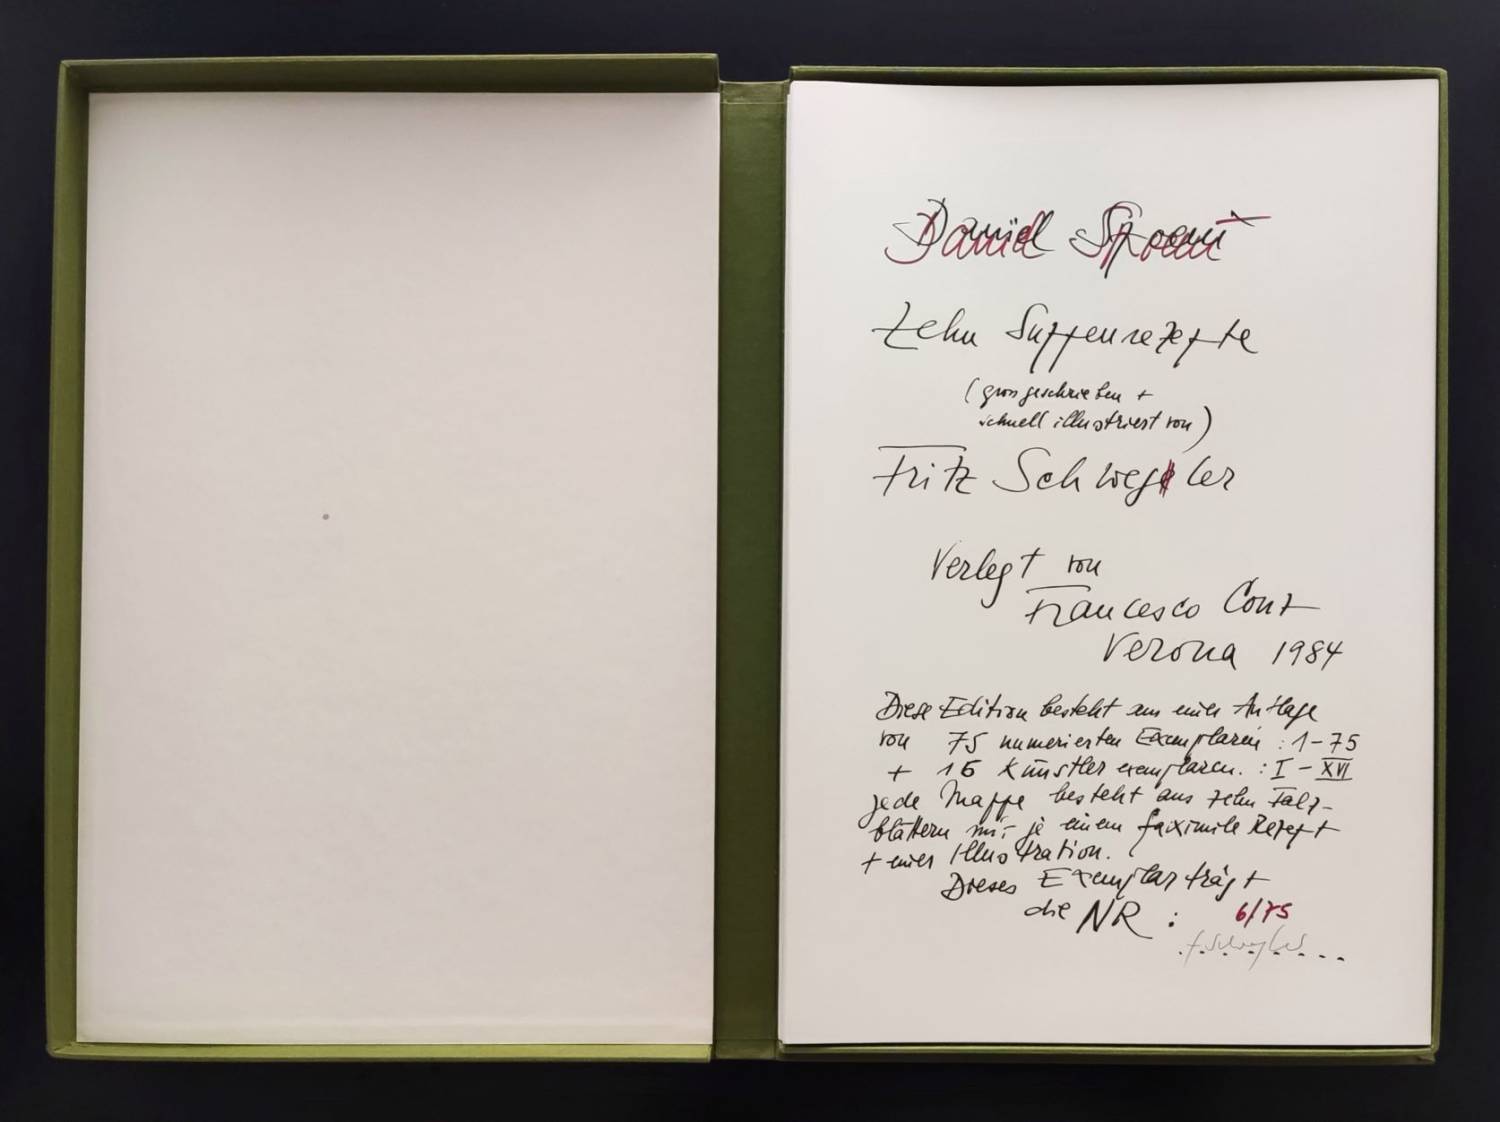 Daniel Spoerri
Zehn Suppenrezepte
(grossgeschrieben +
schnell illustriert von)
Fritz Schwegler
Verlegt von
Francesco Conz
Verona 1984
Diese Edition besteht aus einer Auflage
von 75 numerierten Exemplaren : 1-75
+ 16 Künstlerexemplaren. : I - XVI
jede Mappe besteht aus zehn Falz-
blättern mit je einem faximile Rezept
+ einer Illustration.
Dieses Exemplar trägt
die NR : 6/75
f. Schwegler